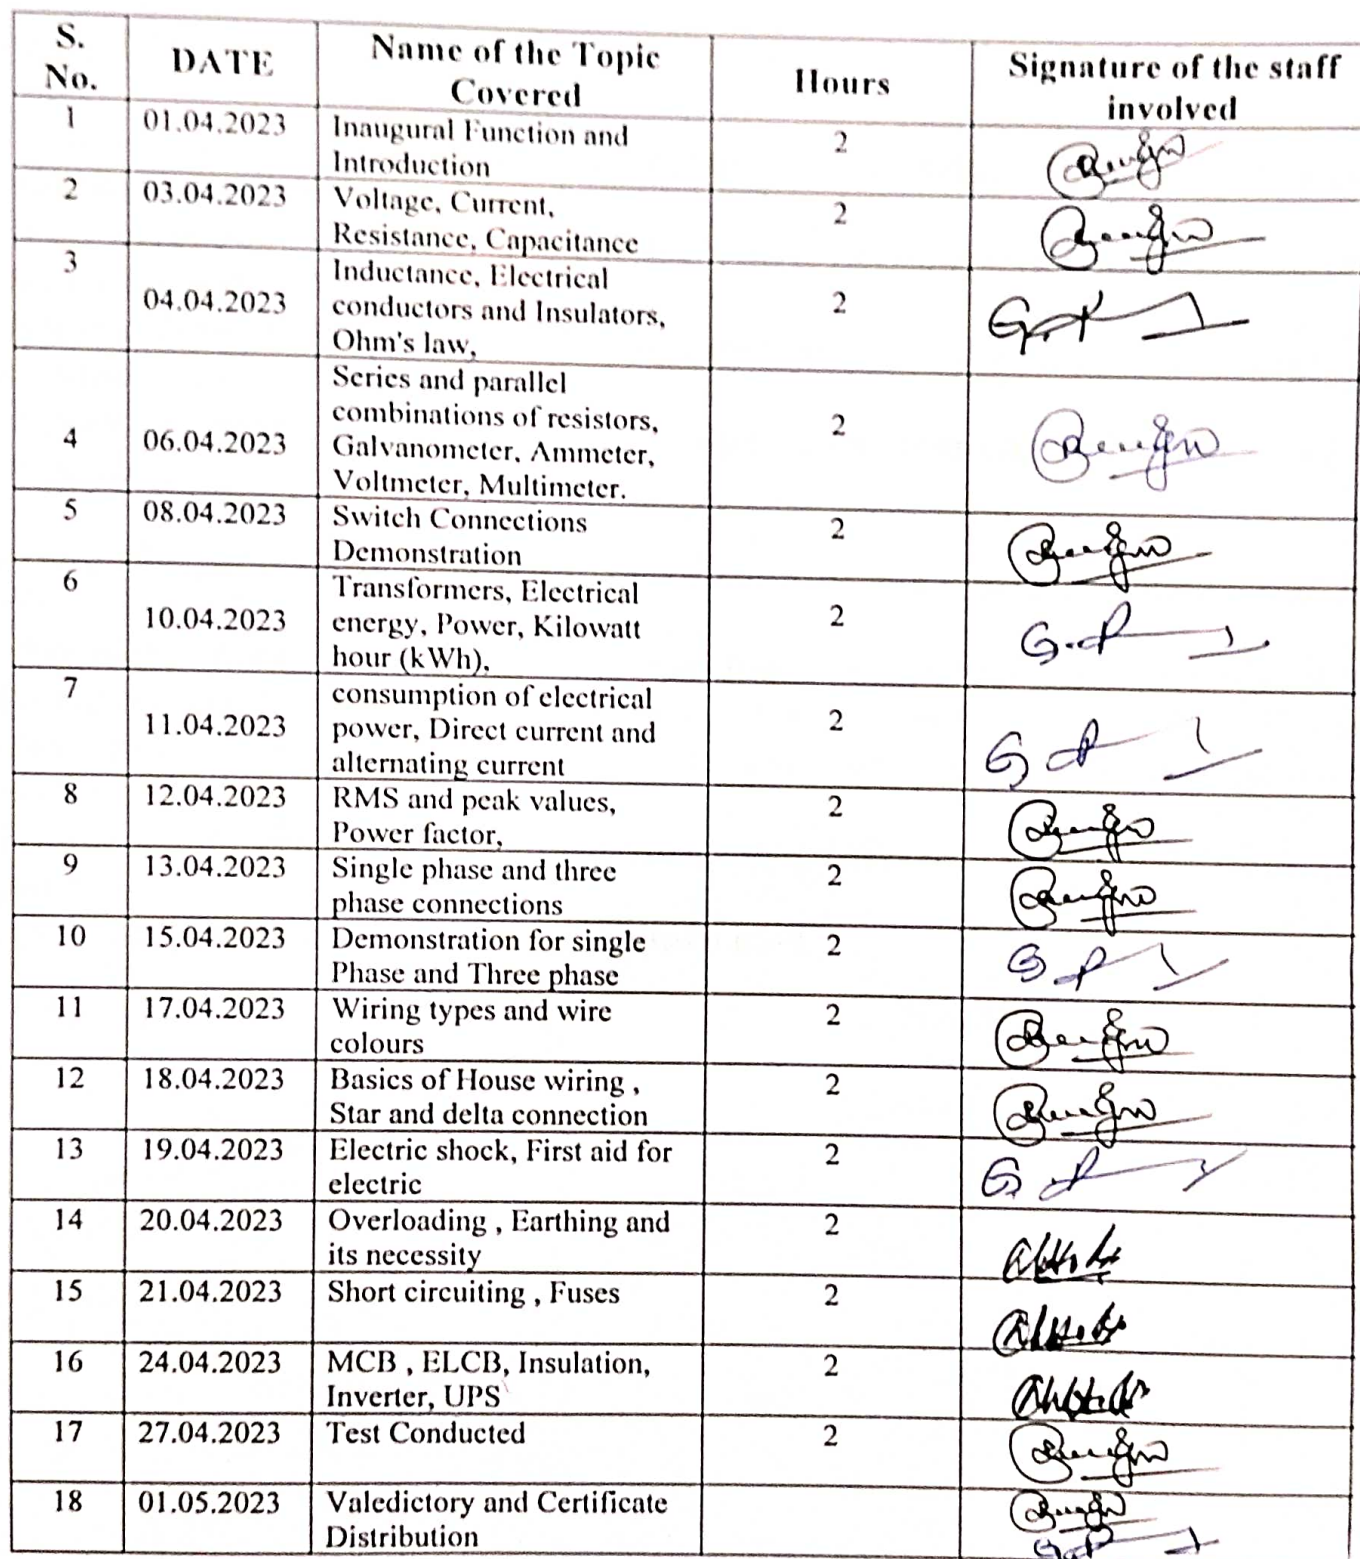 S. No. DATE Name of the Topic Covered Hours Signature of the staff involved
1 01.04.2023 Inaugural Function and
Introduction 2
2 03.04.2023 Voltage, Current,
Resistance, Capacitance 2
3 04.04.2023 Inductance, Electrical
conductors and Insulators,
Ohm's law, 2
4 06.04.2023 Series and parallel
combinations of resistors,
Galvanometer, Ammeter,
Voltmeter, Multimeter. 2
5 08.04.2023 Switch Connections
Demonstration 2
6 10.04.2023 Transformers, Electrical
energy, Power, Kilowatt
hour (kWh), 2
7 11.04.2023 consumption of electrical
power, Direct current and
alternating current 2
8 12.04.2023 RMS and peak values,
Power factor, 2
9 13.04.2023 Single phase and three
phase connections 2
10 15.04.2023 Demonstration for single
Phase and Three phase 2
11 17.04.2023 Wiring types and wire
colours 2
12 18.04.2023 Basics of House wiring ,
Star and delta connection 2
13 19.04.2023 Electric shock, First aid for
electric 2
14 20.04.2023 Overloading , Earthing and
its necessity 2
15 21.04.2023 Short circuiting , Fuses 2
16 24.04.2023 MCB , ELCB, Insulation,
Inverter, UPS 2
17 27.04.2023 Test Conducted 2
18 01.05.2023 Valedictory and Certificate
Distribution